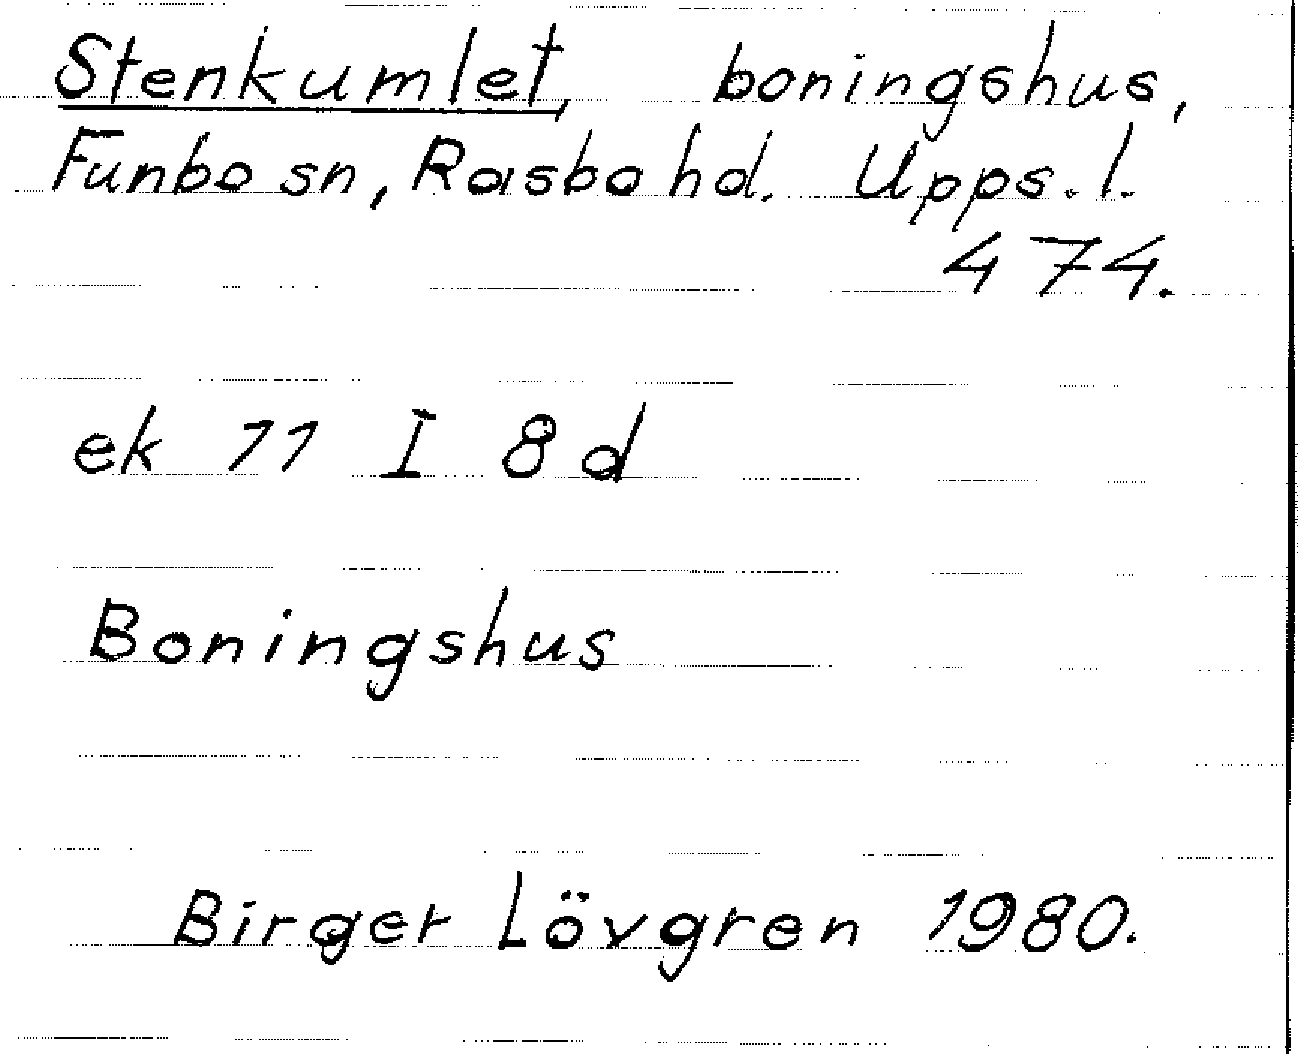 Stenkumlet, boningshus,
Funbo sn, Rasbo hd. Upps. l.
474.
ek 11 I 8 d
Boningshus
Birger Lövgren 1980.